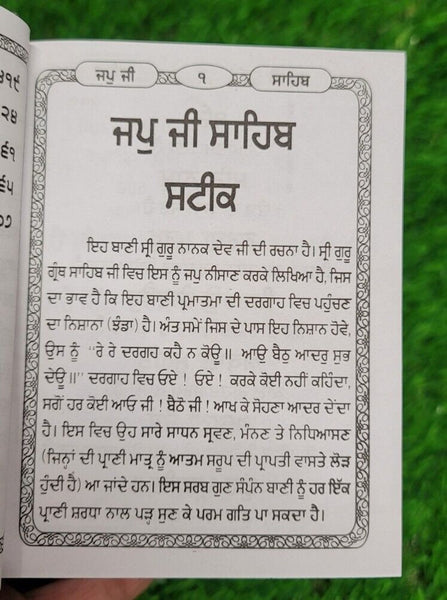 ੩੧੯
੨੪
੬੧
੬੫
੦੭
ਜਪੁ ਜੀ ੧ ਸਾਹਿਬ
ਜਪੁ ਜੀ ਸਾਹਿਬ
ਸਟੀਕ
ਇਹ ਬਾਣੀ ਸ੍ਰੀ ਗੁਰੂ ਨਾਨਕ ਦੇਵ ਜੀ ਦੀ ਰਚਨਾ ਹੈ। ਸ੍ਰੀ ਗੁਰੂ
ਗ੍ਰੰਥ ਸਾਹਿਬ ਜੀ ਵਿਚ ਇਸ ਨੂੰ ਜਪੁ ਨੀਸਾਣ ਕਰਕੇ ਲਿਖਿਆ ਹੈ, ਜਿਸ
ਦਾ ਭਾਵ ਹੈ ਕਿ ਇਹ ਬਾਣੀ ਪ੍ਰਮਾਤਮਾ ਦੀ ਦਰਗਾਹ ਵਿਚ ਪਹੁੰਚਣ
ਦਾ ਨਿਸ਼ਾਨਾ (ਝੰਡਾ) ਹੈ। ਅੰਤ ਸਮੇਂ ਜਿਸ ਦੇ ਪਾਸ ਇਹ ਨਿਸ਼ਾਨ ਹੋਵੇ,
ਉਸ ਨੂੰ "ਰੇ ਰੇ ਦਰਗਹ ਕਹੈ ਨ ਕੋਊ॥ ਆਉ ਬੈਠੁ ਆਦਰੁ ਸੁਭ
ਦੇਊ॥" ਦਰਗਾਹ ਵਿਚ ਓਏ ! ਓਏ ! ਕਰਕੇ ਕੋਈ ਨਹੀਂ ਕਹਿੰਦਾ,
ਸਗੋਂ ਹਰ ਕੋਈ ਆਓ ਜੀ ! ਬੈਠੋ ਜੀ ! ਆਖ ਕੇ ਸੋਹਣਾ ਆਦਰ ਦੇਂਦਾ
ਹੈ। ਇਸ ਵਿਚ ਉਹ ਸਾਰੇ ਸਾਧਨ ਸ੍ਰਵਣ, ਮੰਨਣ ਤੇ ਨਿਧਿਆਸਣ
(ਜਿਨ੍ਹਾਂ ਦੀ ਪ੍ਰਾਣੀ ਮਾਤ੍ਰ ਨੂੰ ਆਤਮ ਸਰੂਪ ਦੀ ਪ੍ਰਾਪਤੀ ਵਾਸਤੇ ਲੋੜ
ਹੁੰਦੀ ਹੈ) ਆ ਜਾਂਦੇ ਹਨ। ਇਸ ਸਰਬ ਗੁਣ ਸੰਪੰਨ ਬਾਣੀ ਨੂੰ ਹਰ ਇੱਕ
ਪ੍ਰਾਣੀ ਸ਼ਰਧਾ ਨਾਲ ਪੜ੍ਹ ਸੁਣ ਕੇ ਪਰਮ ਗਤਿ ਪਾ ਸਕਦਾ ਹੈ।